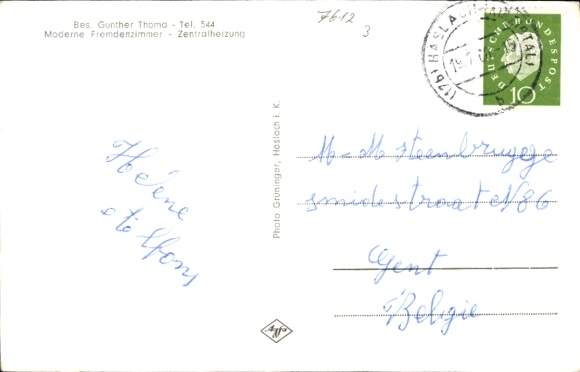 Bes. Gunther Thoma - Tel. 544
Moderne Fremdenzimmer - Zentralheizung
7612
3
(17b) HASLACH (KINZIGTAL)
b
DEUTSCHE BUNDESPOST
10
Photo Grüninger, Haslach i. K.
Hélène
et Alfons
M-M Steenbrugge
smidestraat N 86
Gent
België